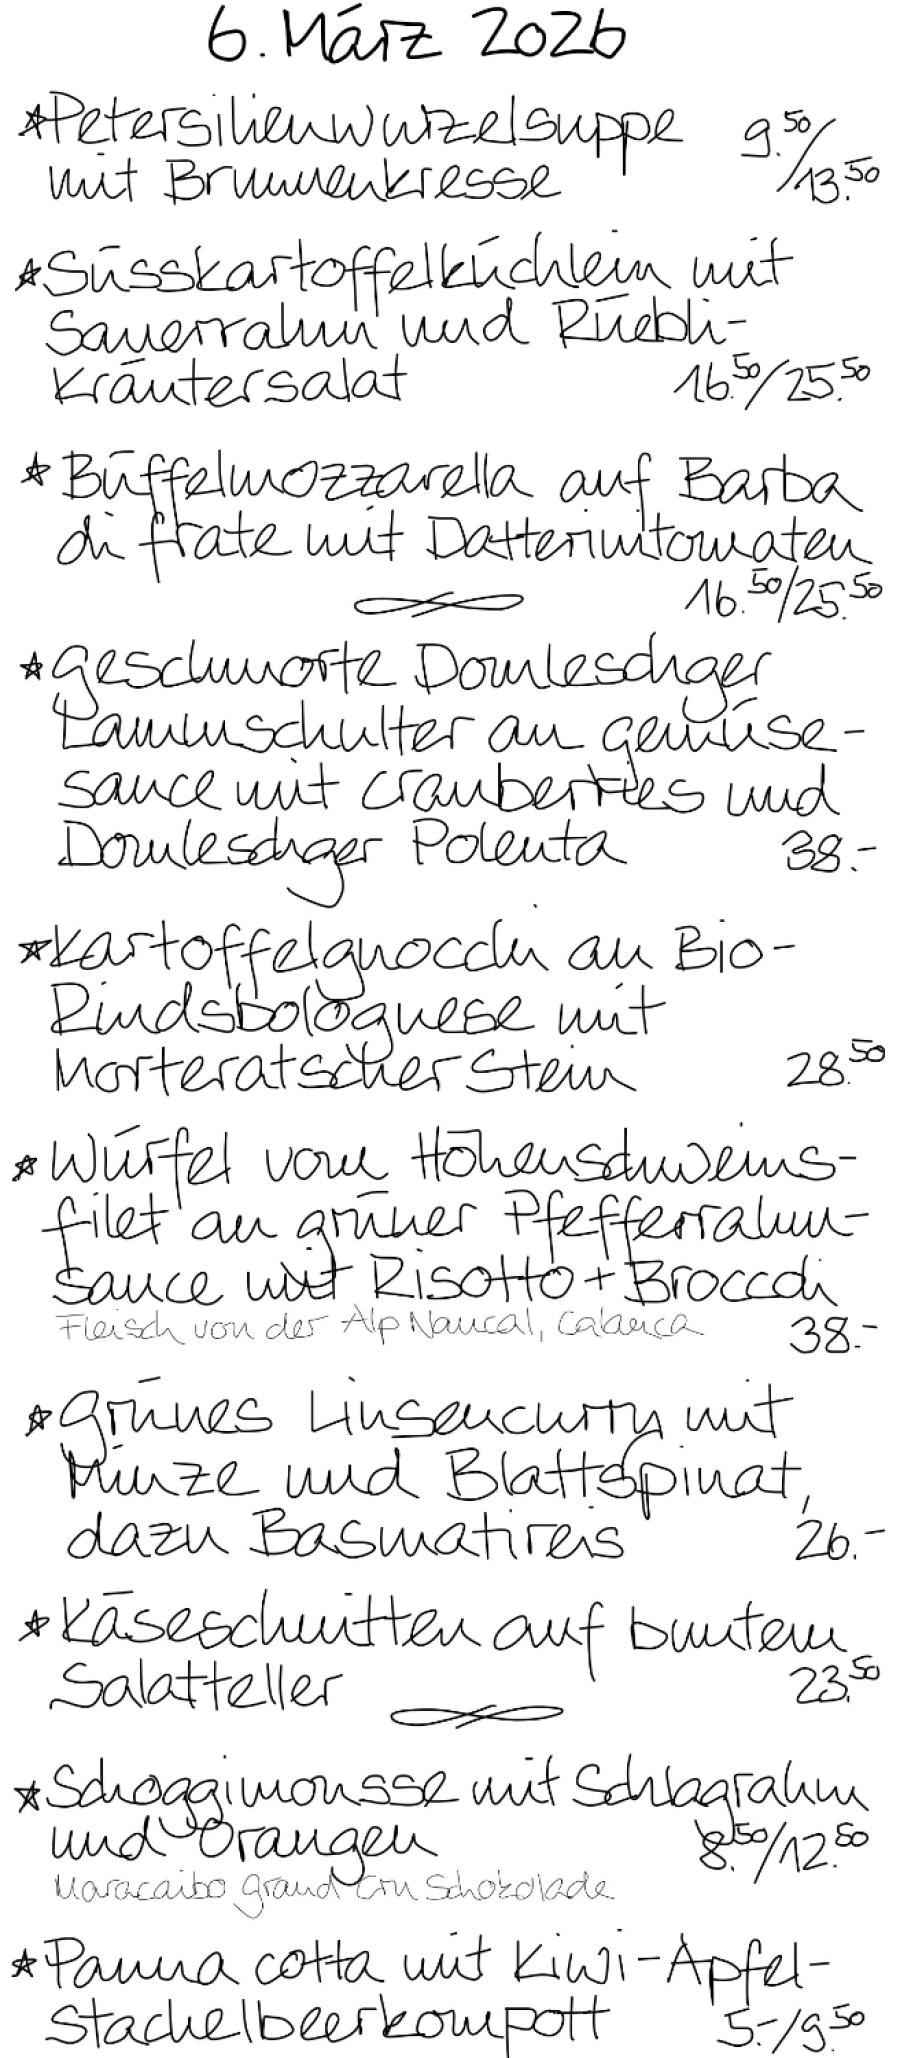 6. März 2026
*Petersilienwurzelsuppe 9.50/
mit Brunnenkresse 13.50
*Süsskartoffelküchlein mit
Sauerrahm und Rüebli-
Kräutersalat 16.50/25.50
* Büffelmozzarella auf Barba
di frate mit Datterinitomaten
16.50/25.50
* Geschmorte Domleschger
Lammschulter an Gemüse-
sauce mit Cranberries und
Domleschger Polenta 38.-
*Kartoffelgnocchi an Bio-
Rindsbolognese mit
Morteratscher Stein 28.50
* Würfel vom Höhenschweins-
filet an grüner Pfefferrahm-
sauce mit Risotto + Broccoli
Fleisch von der Alp Naucal, Calanca 38.-
* Grünes Linsencurry mit
Minze und Blattspinat,
dazu Basmatireis 26.-
* Käseschnitten auf buntem
Salatteller 23.50
* Schoggimousse mit Schlagrahm
und Orangen 8.50/12.50
Maracaibo grand Cru Schokolade
* Panna cotta mit Kiwi-Apfel-
Stachelbeerkompott 5.-/9.50